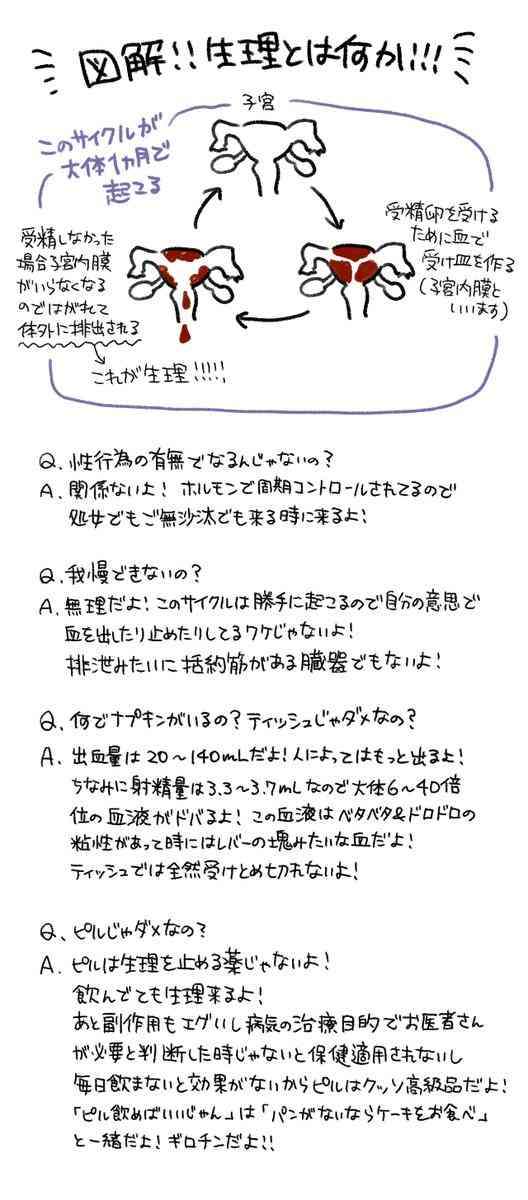 図解!!生理とは何か!!!
子宮
このサイクルが
大体1ヵ月で
起てる
受精卵を受ける
ために血で
受け皿を作る
(子宮内膜と
いいます)
受精しなかった
場合子宮内膜
がいらなくなる
のではがれて
体外に排出される
これが生理!!!!!
Q. 性行為の有無でなるんじゃないの?
A. 関係ないよ! ホルモンで周期コントロールされてるので
処女でもご無沙汰でも来る時に来るよ!
Q. 我慢できないの?
A. 無理だよ! このサイクルは勝手に起こるので自分の意思で
血を出したり止めたりしてるワケじゃないよ!
排泄みたいに括約筋がある臓器でもないよ!
Q. 何でナプキンがいるの? ティッシュじゃダメなの?
A. 出血量は20〜140mLだよ! 人によってはもっと出るよ!
ちなみに射精量は3.3〜3.7mLなので大体6〜40倍
位の血液がドバるよ! この血液はベタベタ&ドロドロの
粘性があって時にはレバーの塊みたいな血だよ!
ティッシュでは全然受けとめ切れないよ!
Q、ピルじゃダメなの?
A. ピルは生理を止める薬じゃないよ!
飲んでても生理来るよ!
あと副作用もエグいし病気の治療目的でお医者さん
が必要と判断した時じゃないと保健適用されないし
毎日飲まないと効果がないからピルはクッソ高級品だよ!
「ピル飲めばいいじゃん」は「パンがないならケーキをお食べ」
と一緒だよ! ギロチンだよ!!